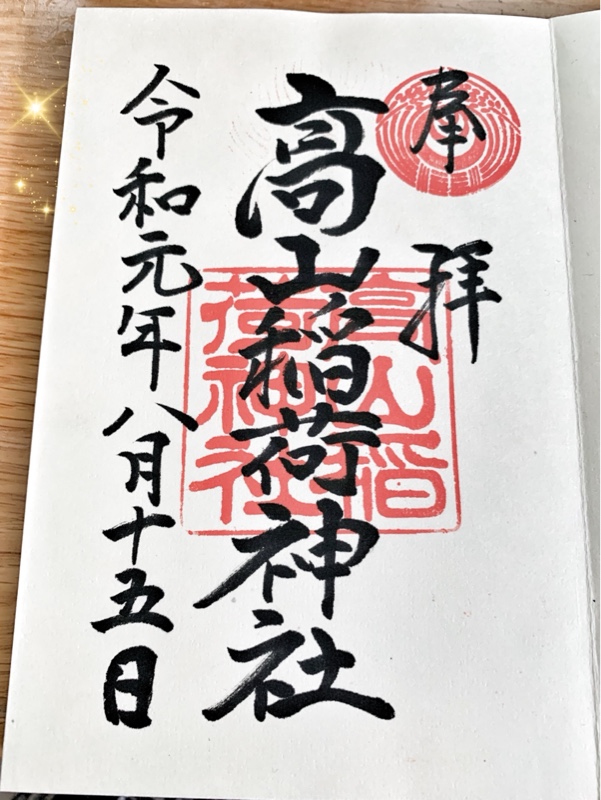 奉拝
高山稲荷神社
高山稲荷神社
令和元年八月十五日